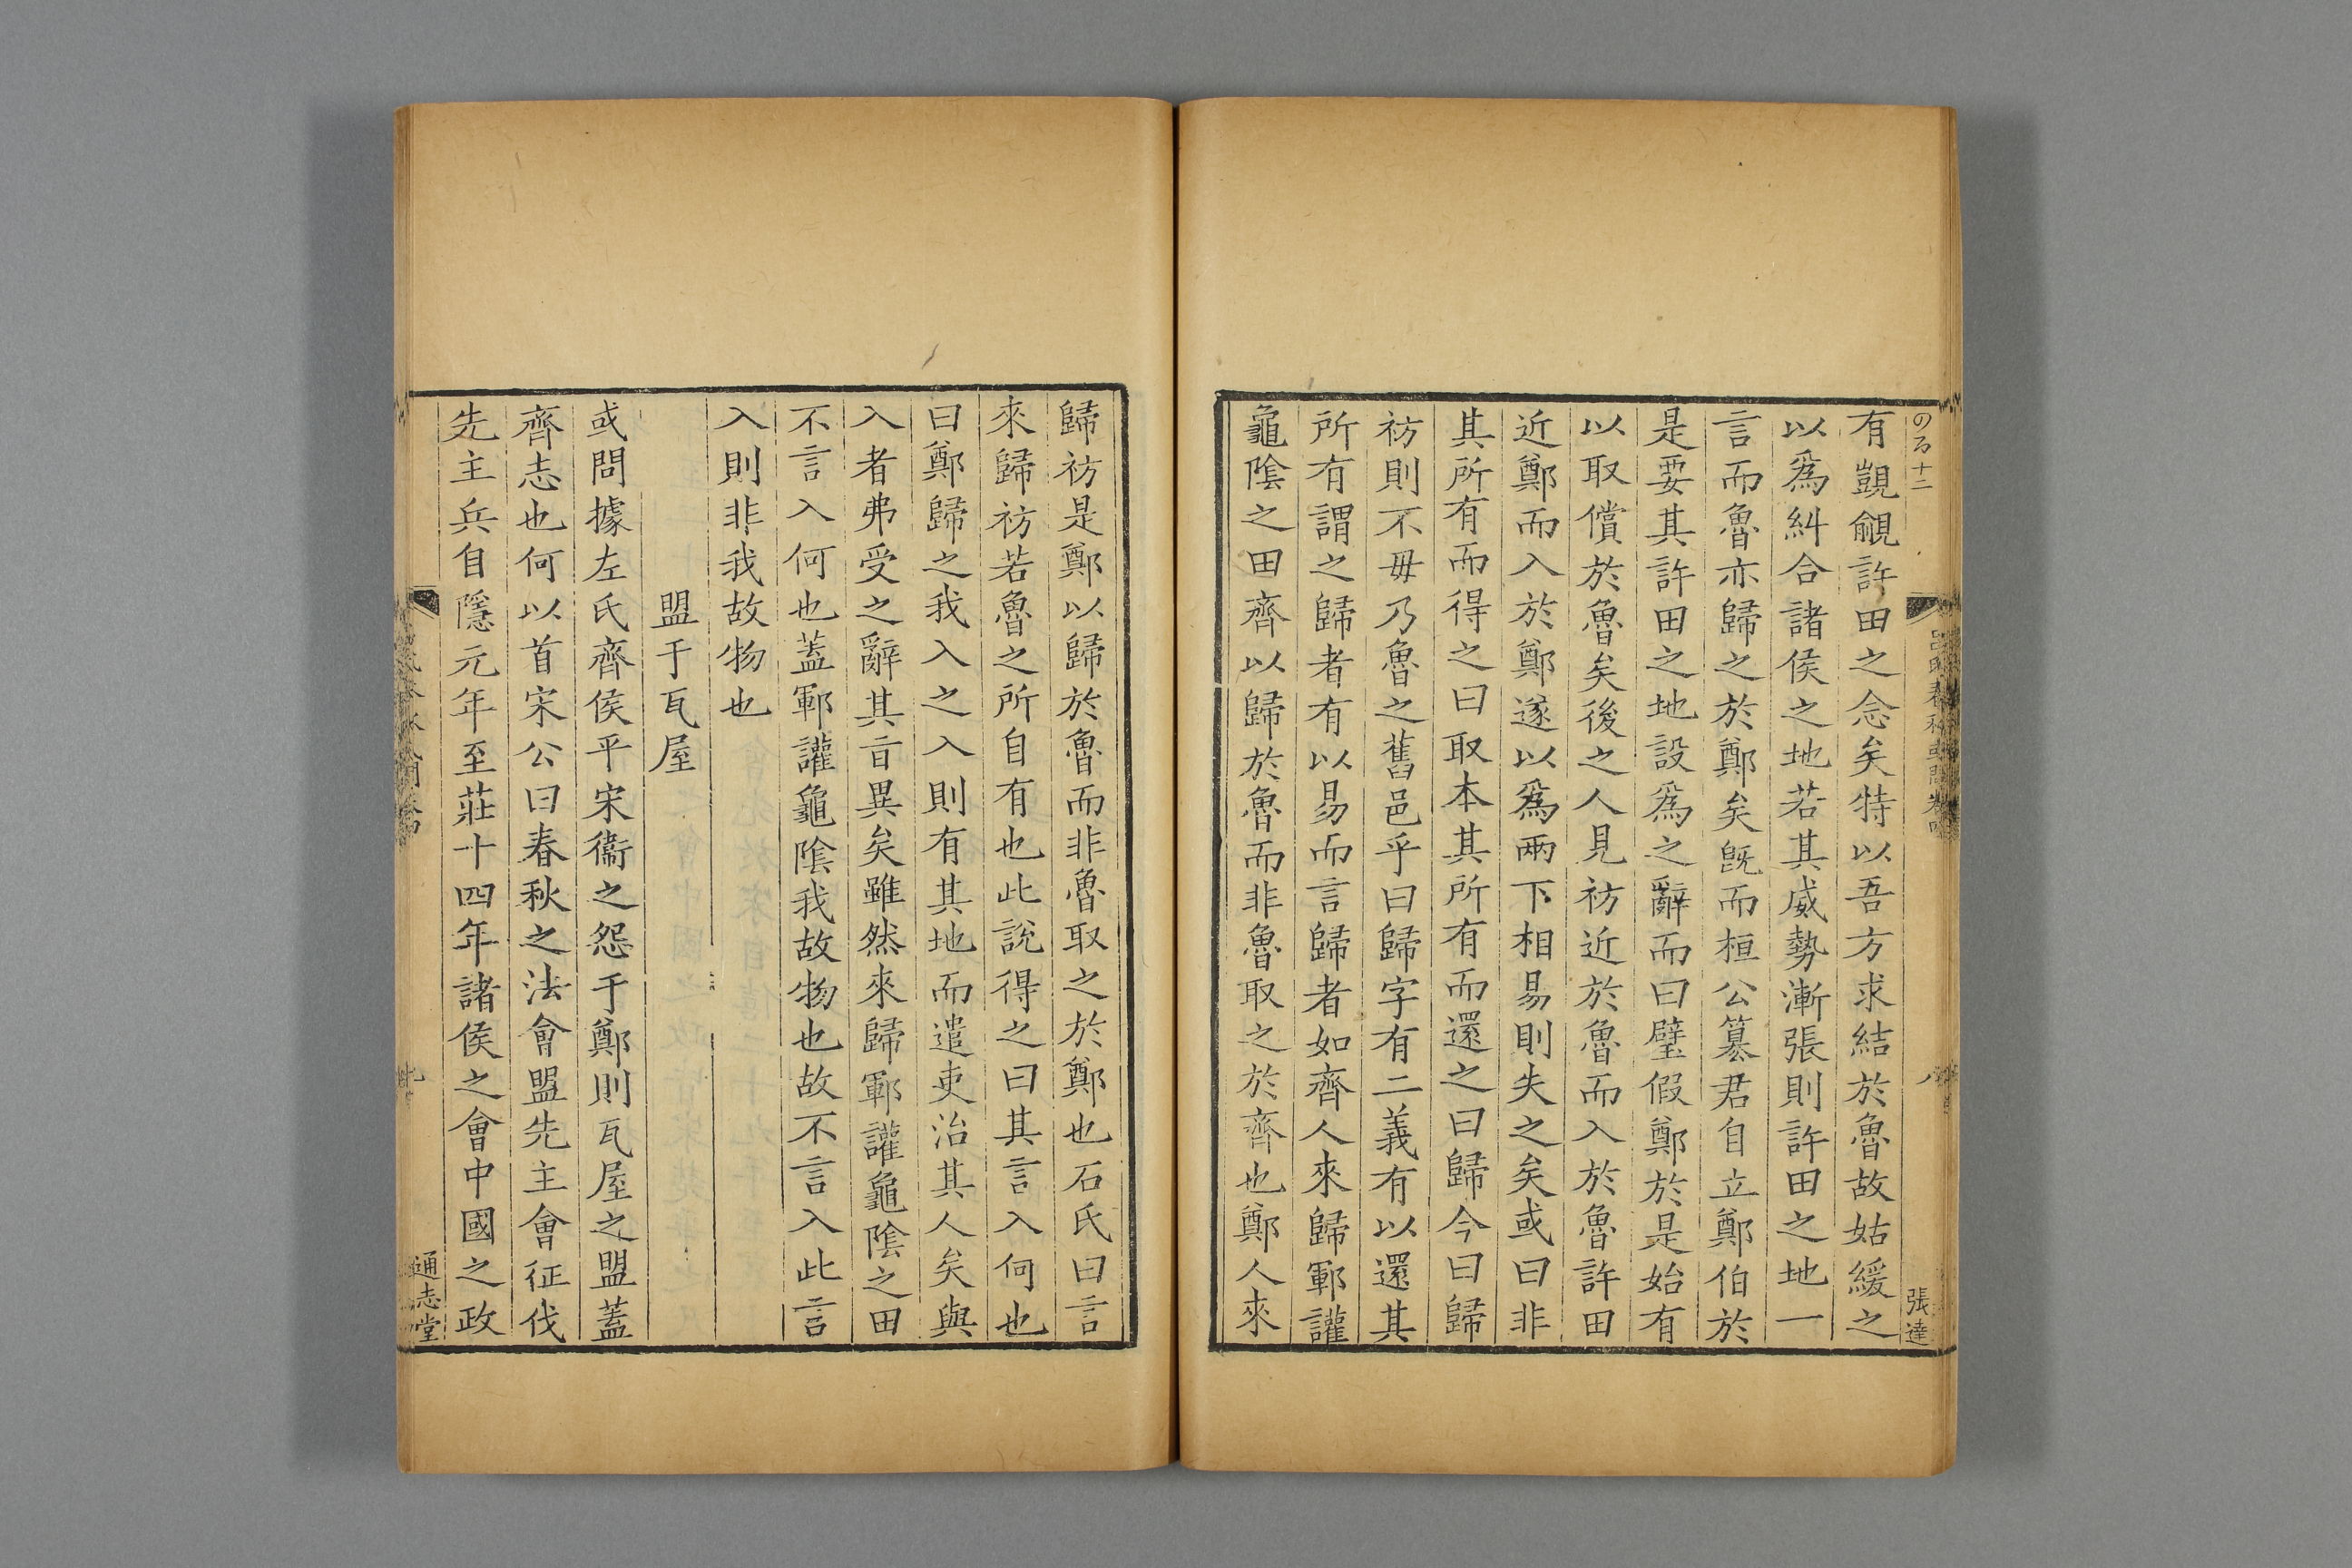 有覬覦許田之念矣特以吾方求結於魯故姑緩之
以爲糾合諸侯之地若其威勢漸張則許田之地一
言而魯亦歸之於鄭矣旣而桓公篡君自立鄭伯於
是要其許田之地設爲之辭而曰璧假鄭於是始有
以取償於魯矣後之人見祊近於魯而入於魯許田
近鄭而入於鄭遂以爲兩下相易則失之矣或曰非
其所有而得之曰取本其所有而還之曰歸今曰歸
祊則不毋乃魯之舊邑乎曰歸字有二義有以還其
所有謂之歸者有以易而言歸者如齊人來歸鄆讙
龜陰之田齊以歸於魯而非魯取之於齊也鄭人來
張達
歸祊是鄭以歸於魯而非魯取之於鄭也石氏曰言
來歸祊若魯之所自有也此說得之曰其言入何也
曰鄭歸之我入之入則有其地而遣吏治其人矣與
入者弗受之辭其㫖異矣雖然來歸鄆讙龜陰之田
不言入何也蓋鄆讙龜陰我故物也故不言入此言
入則非我故物也
盟于瓦屋
或問據左氏齊侯平宋衞之怨于鄭則瓦屋之盟蓋
齊志也何以首宋公曰春秋之法會盟先主會征伐
先主兵自隱元年至莊十四年諸侯之會中國之政
通志堂